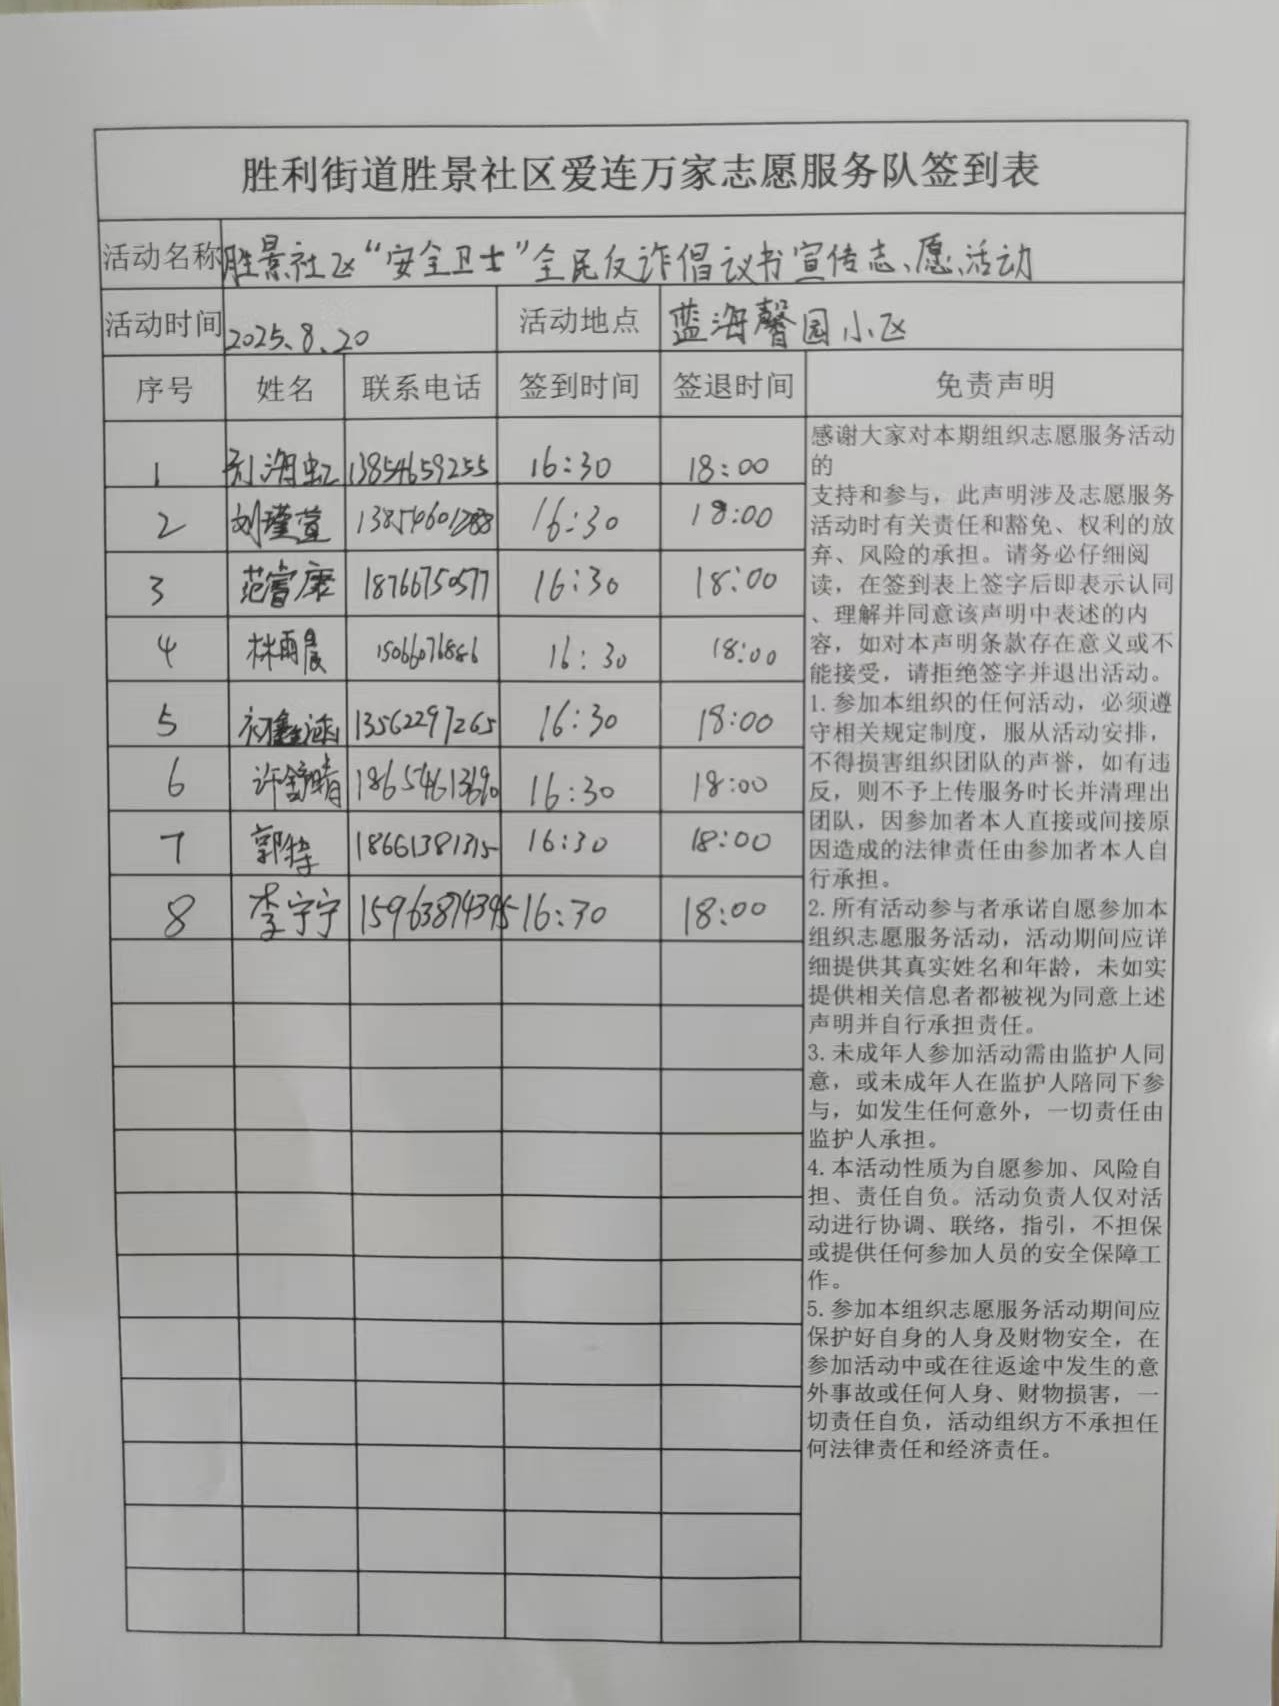 胜利街道胜景社区爱连万家志愿服务队签到表
活动名称 胜景社区“安全卫士”全民反诈倡议书宣传志愿活动
活动时间 2025.8.20 活动地点 蓝海馨园小区
序号 姓名 联系电话 签到时间 签退时间 免责声明
1 海虹 13854659255 16:30 18:00
2 刘瑾萱 16:30 18:00
3 范睿康 18766750577 16:30 18:00
4 林雨晨 15066076886 16:30 18:00
5 13562297265 16:30 18:00
6 许舒晴 16:30 18:00
7 郭 18661381315 16:30 18:00
8 李宁宁 15963874395 16:30 18:00
感谢大家对本期组织志愿服务活动
的
支持和参与，此声明涉及志愿服务
活动时有关责任和豁免、权利的放
弃、风险的承担。请务必仔细阅
读，在签到表上签字后即表示认同
、理解并同意该声明中表述的内
容，如对本声明条款存在意义或不
能接受，请拒绝签字并退出活动。
1.参加本组织的任何活动，必须遵
守相关规定制度，服从活动安排，
不得损害组织团队的声誉，如有违
反，则不予上传服务时长并清理出
团队，因参加者本人直接或间接原
因造成的法律责任由参加者本人自
行承担。
2.所有活动参与者承诺自愿参加本
组织志愿服务活动，活动期间应详
细提供其真实姓名和年龄，未如实
提供相关信息者都被视为同意上述
声明并自行承担责任。
3.未成年人参加活动需由监护人同
意，或未成年人在监护人陪同下参
与，如发生任何意外，一切责任由
监护人承担。
4.本活动性质为自愿参加、风险自
担、责任自负。活动负责人仅对活
动进行协调、联络，指引，不担保
或提供任何参加人员的安全保障工
作。
5.参加本组织志愿服务活动期间应
保护好自身的人身及财物安全，在
参加活动中或在往返途中发生的意
外事故或任何人身、财物损害，一
切责任自负，活动组织方不承担任
何法律责任和经济责任。